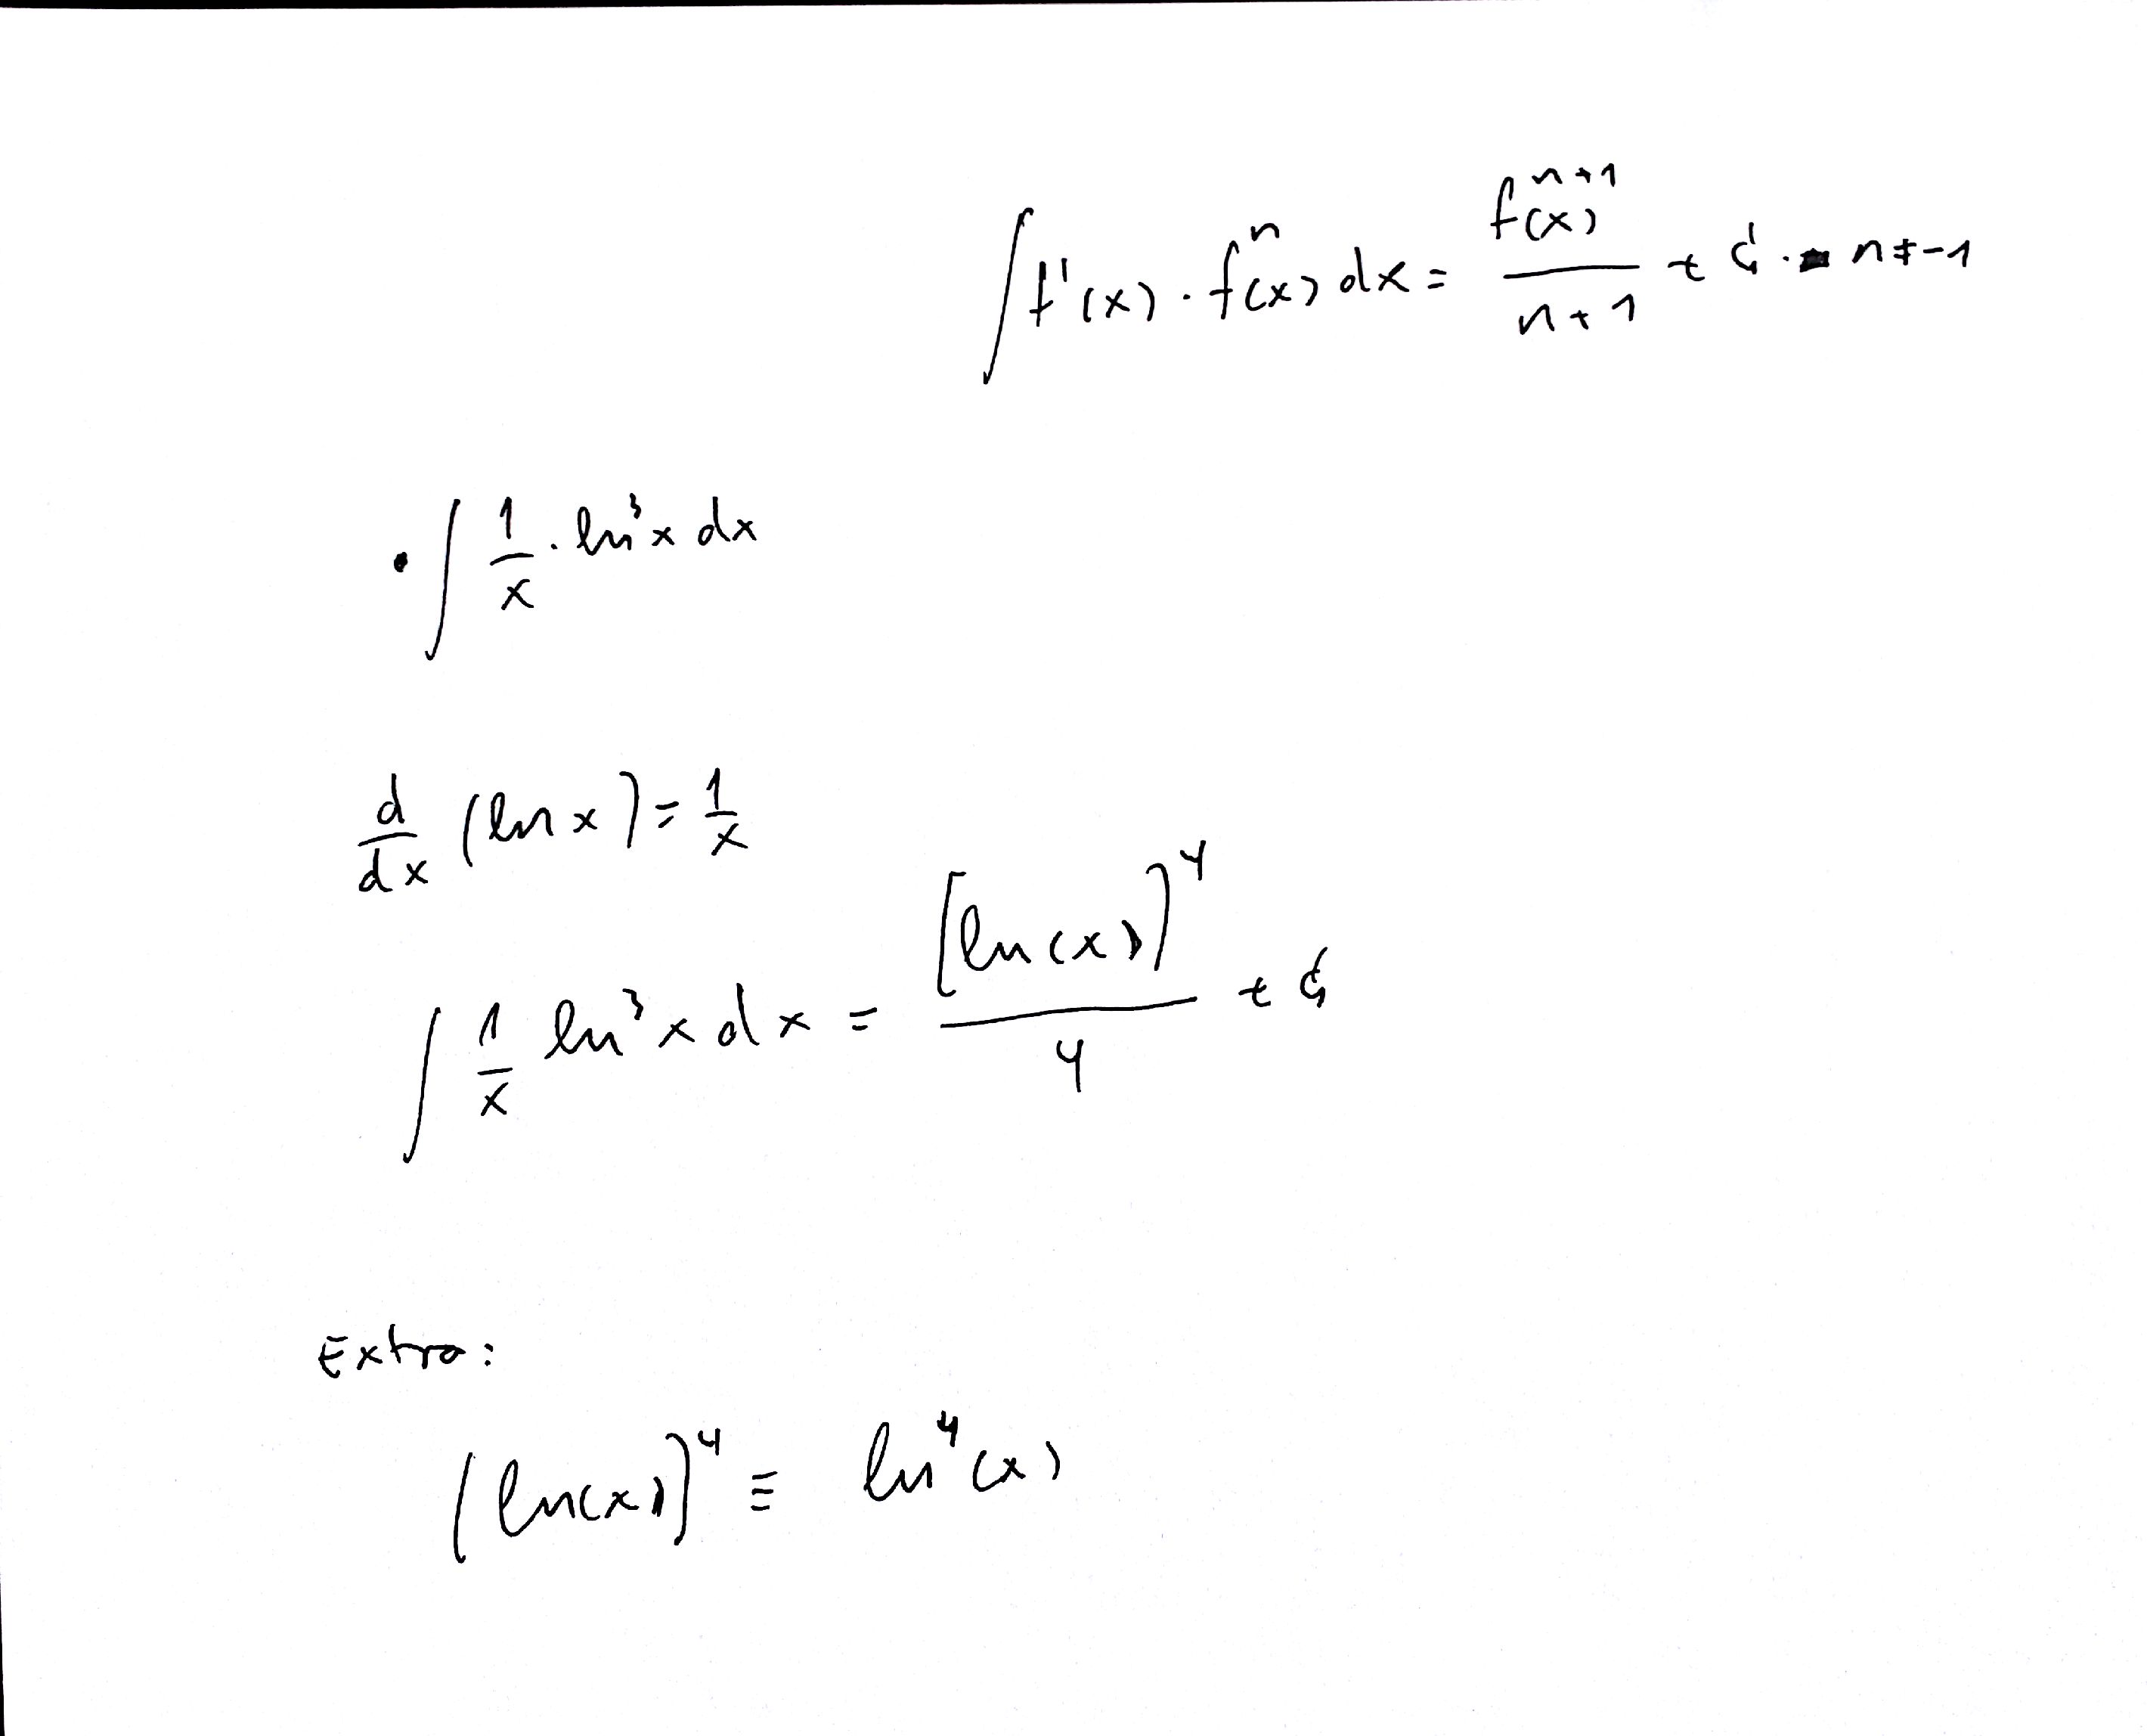 ∫ f'(x) · fⁿ(x) dx = f(x)ⁿ⁺¹ / (n+1) + C. n ≠ -1
• ∫ 1/x · ln³x dx
d/dx (ln x) = 1/x
∫ 1/x ln³x dx = [ln(x)]⁴ / 4 + C
Extra:
(ln(x))⁴ ≡ ln⁴(x)